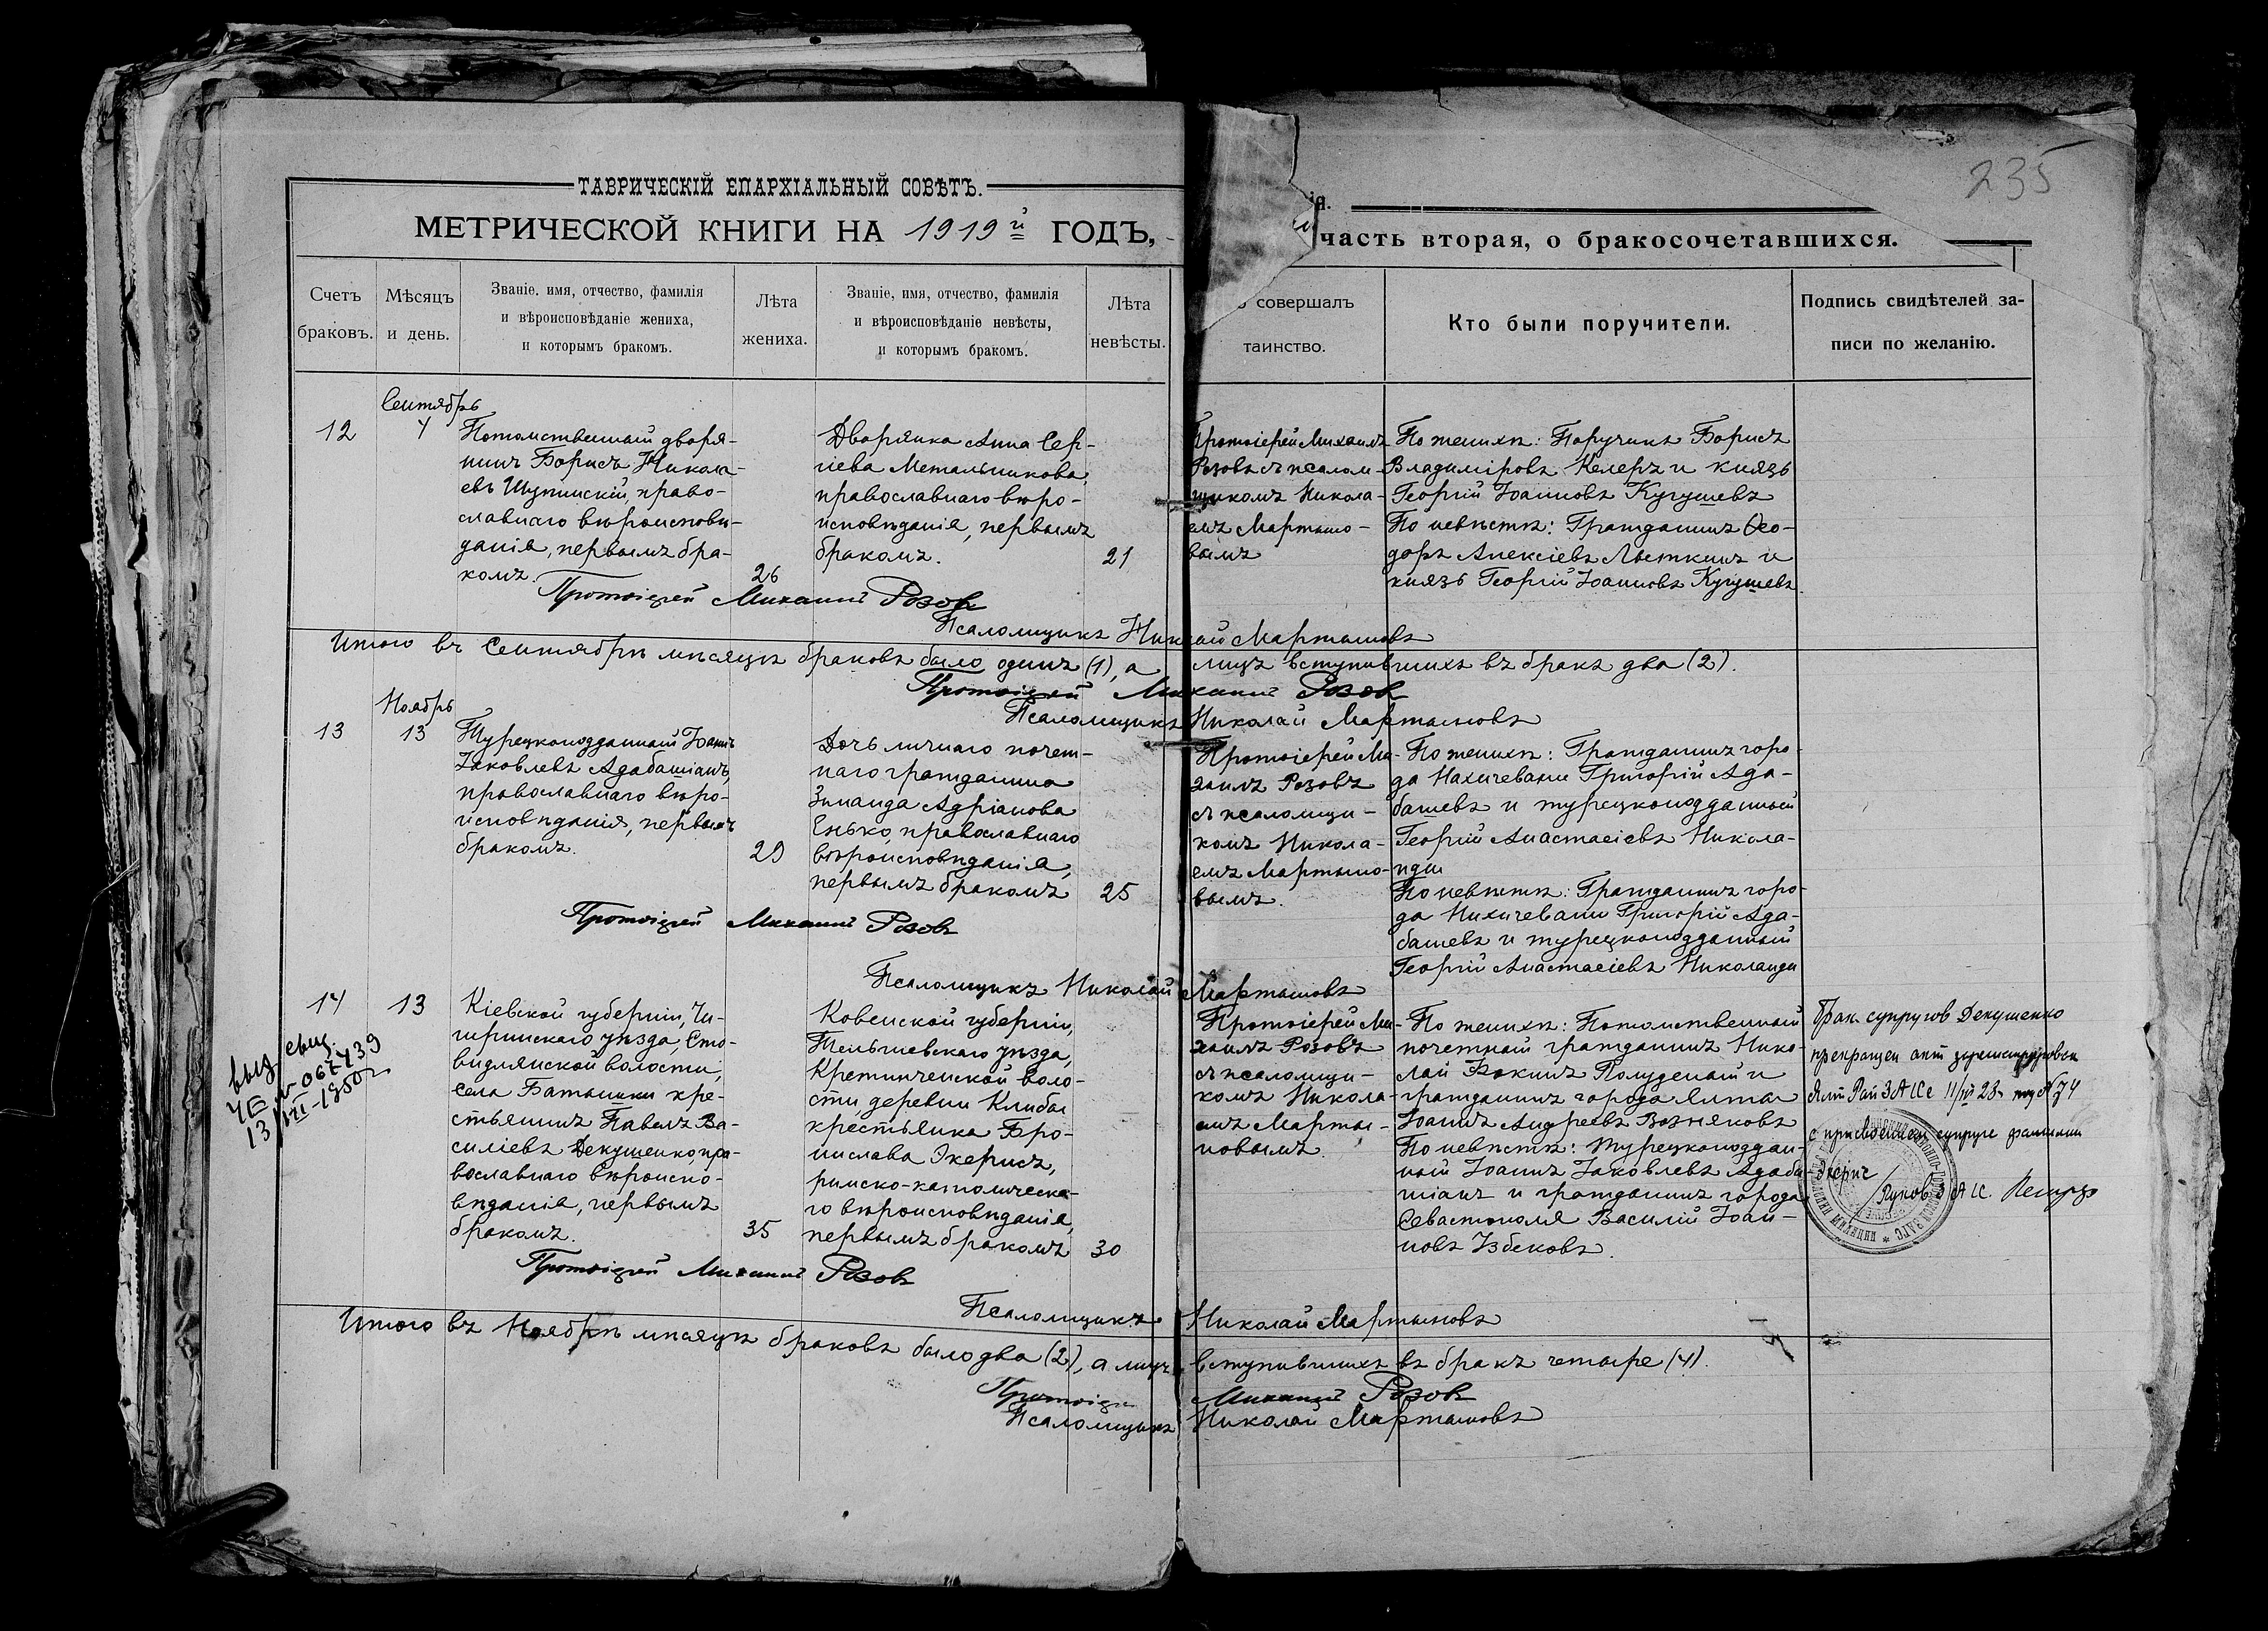 235
ТАВРИЧЕСКІЙ ЕПАРХІАЛЬНЫЙ СОВѢТЪ.
МЕТРИЧЕСКОЙ КНИГИ НА 1919й ГОДЪ,
часть вторая, о бракосочетавшихся.
Счетъ
браковъ.
Мѣсяцъ
и день.
Званіе, имя, отчество, фамилія
и вѣроисповѣданіе жениха,
и которымъ бракомъ.
Лѣта
жениха.
Званіе, имя, отчество, фамилія
и вѣроисповѣданіе невѣсты,
и которымъ бракомъ.
Лѣта
невѣсты.
совершалъ
таинство.
Кто были поручители.
Подпись свидѣтелей за-
писи по желанію.
12
Сентябрь
4
Потомственный дворя-
нинъ Борисъ Никола-
евъ Шупинскій, право-
славнаго вѣроисповѣ-
данія, первымъ бра-
комъ.
26
Дворянка Анна Сер-
гіева Метальникова,
православнаго вѣро-
исповѣданія, первымъ
бракомъ.
21
Протоіерей Михаилъ
Розовъ съ псалом-
щикомъ Никола-
емъ Мартыно-
вымъ
По женихѣ: Поручикъ Борисъ
Владиміровъ Келеръ и князь
Георгій Іоанновъ Кугушевъ
По невѣстѣ: Гражданинъ Ѳео-
доръ Алексіевъ Лыткинъ и
князь Георгій Іоанновъ Кугушевъ.
Протоіерей Михаилъ Розовъ
Псаломщикъ Николай Мартыновъ
Итого въ Сентябрѣ мѣсяцѣ браковъ было одинъ (1), а лицъ вступившихъ въ бракъ два (2).
Протоіерей Михаилъ Розовъ
Псаломщикъ Николай Мартыновъ
13
Ноябрь
13
Турецкоподданный Іоаннъ
Іаковлевъ Адабашіанъ,
православнаго вѣро-
исповѣданія, первымъ
бракомъ.
29
Дочь личнаго почет-
наго гражданина
Зинаида Адріанова
Енько, православнаго
вѣроисповѣданія,
первымъ бракомъ
25
Протоіерей Ми-
хаилъ Розовъ
съ псаломщи-
комъ Никола-
емъ Мартыно-
вымъ.
По женихѣ: Гражданинъ горо-
да Нахичевани Григорій Ада-
башевъ и турецкоподданный
Георгій Анастасіевъ Никола-
иди
По невѣстѣ: Гражданинъ горо-
да Нихичевани Григорій Ада-
башевъ и турецкоподданный
Георгій Анастасіевъ Николаиди
Протоіерей Михаилъ Розовъ
Псаломщикъ Николай Мартыновъ
14
13
Кіевской губерніи, Чи-
гиринскаго уѣзда, Сто-
видлянской волости,
села Баташки кре-
стьянинъ Павелъ Ва-
силіевъ Декушенко, пра-
вославнаго вѣроиспо-
вѣданія, первымъ
бракомъ.
35
Ковенской губерніи,
Тельшевскаго уѣзда,
Кретингенской воло-
сти деревни Клибы
крестьянка Бро-
нислава Экерисъ,
римско-католическа-
го вѣроисповѣданія,
первымъ бракомъ
30
Протоіерей Ми-
хаилъ Розовъ
съ псаломщи-
комъ Никола-
емъ Марты-
новымъ.
По женихѣ: Потомственный
почетный гражданинъ Нико-
лай Фокинъ Полуденый и
гражданинъ города Ялты
Іоаннъ Андреевъ Возняковъ
По невѣстѣ: турецкоподдан-
ный Іоаннъ Іаковлевъ Адаба-
шіанъ и гражданинъ города
Севастополя Василій Іоан-
новъ Избековъ.
Брак супругов Декушенко
прекращен акт зарегистрирован
Ялт Рай ЗАГСе 11/VII 23г под № 74
с присвоением супруге фамилии
Экерис
выд. свид.
13/VII-1950г
Протоіерей Михаилъ Розовъ
Псаломщикъ Николай Мартыновъ
Итого въ Ноябрѣ мѣсяцѣ браковъ было два (2), а лицъ вступившихъ въ бракъ четыре (4).
Протоіерей Михаилъ Розовъ
Псаломщикъ Николай Мартыновъ